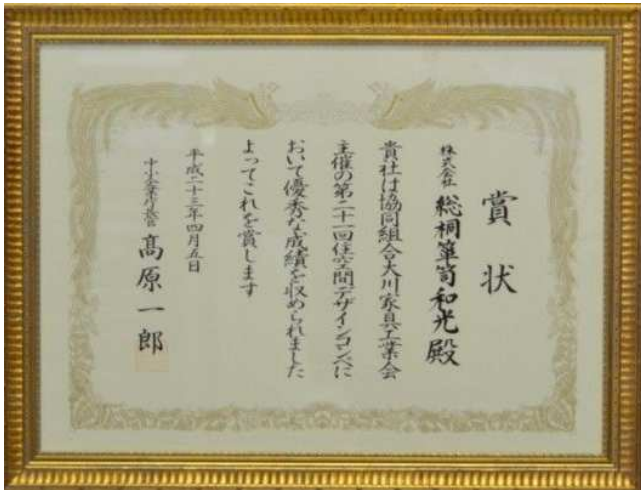 賞状
株式会社 総桐箪笥和光殿
貴社は協同組合大川家具工業会
主催の第二十一回住空間デザインコンペに
おいて優秀な成績を収められました
よってこれを賞します
平成二十三年四月五日
中小企業庁長官 髙原一郎